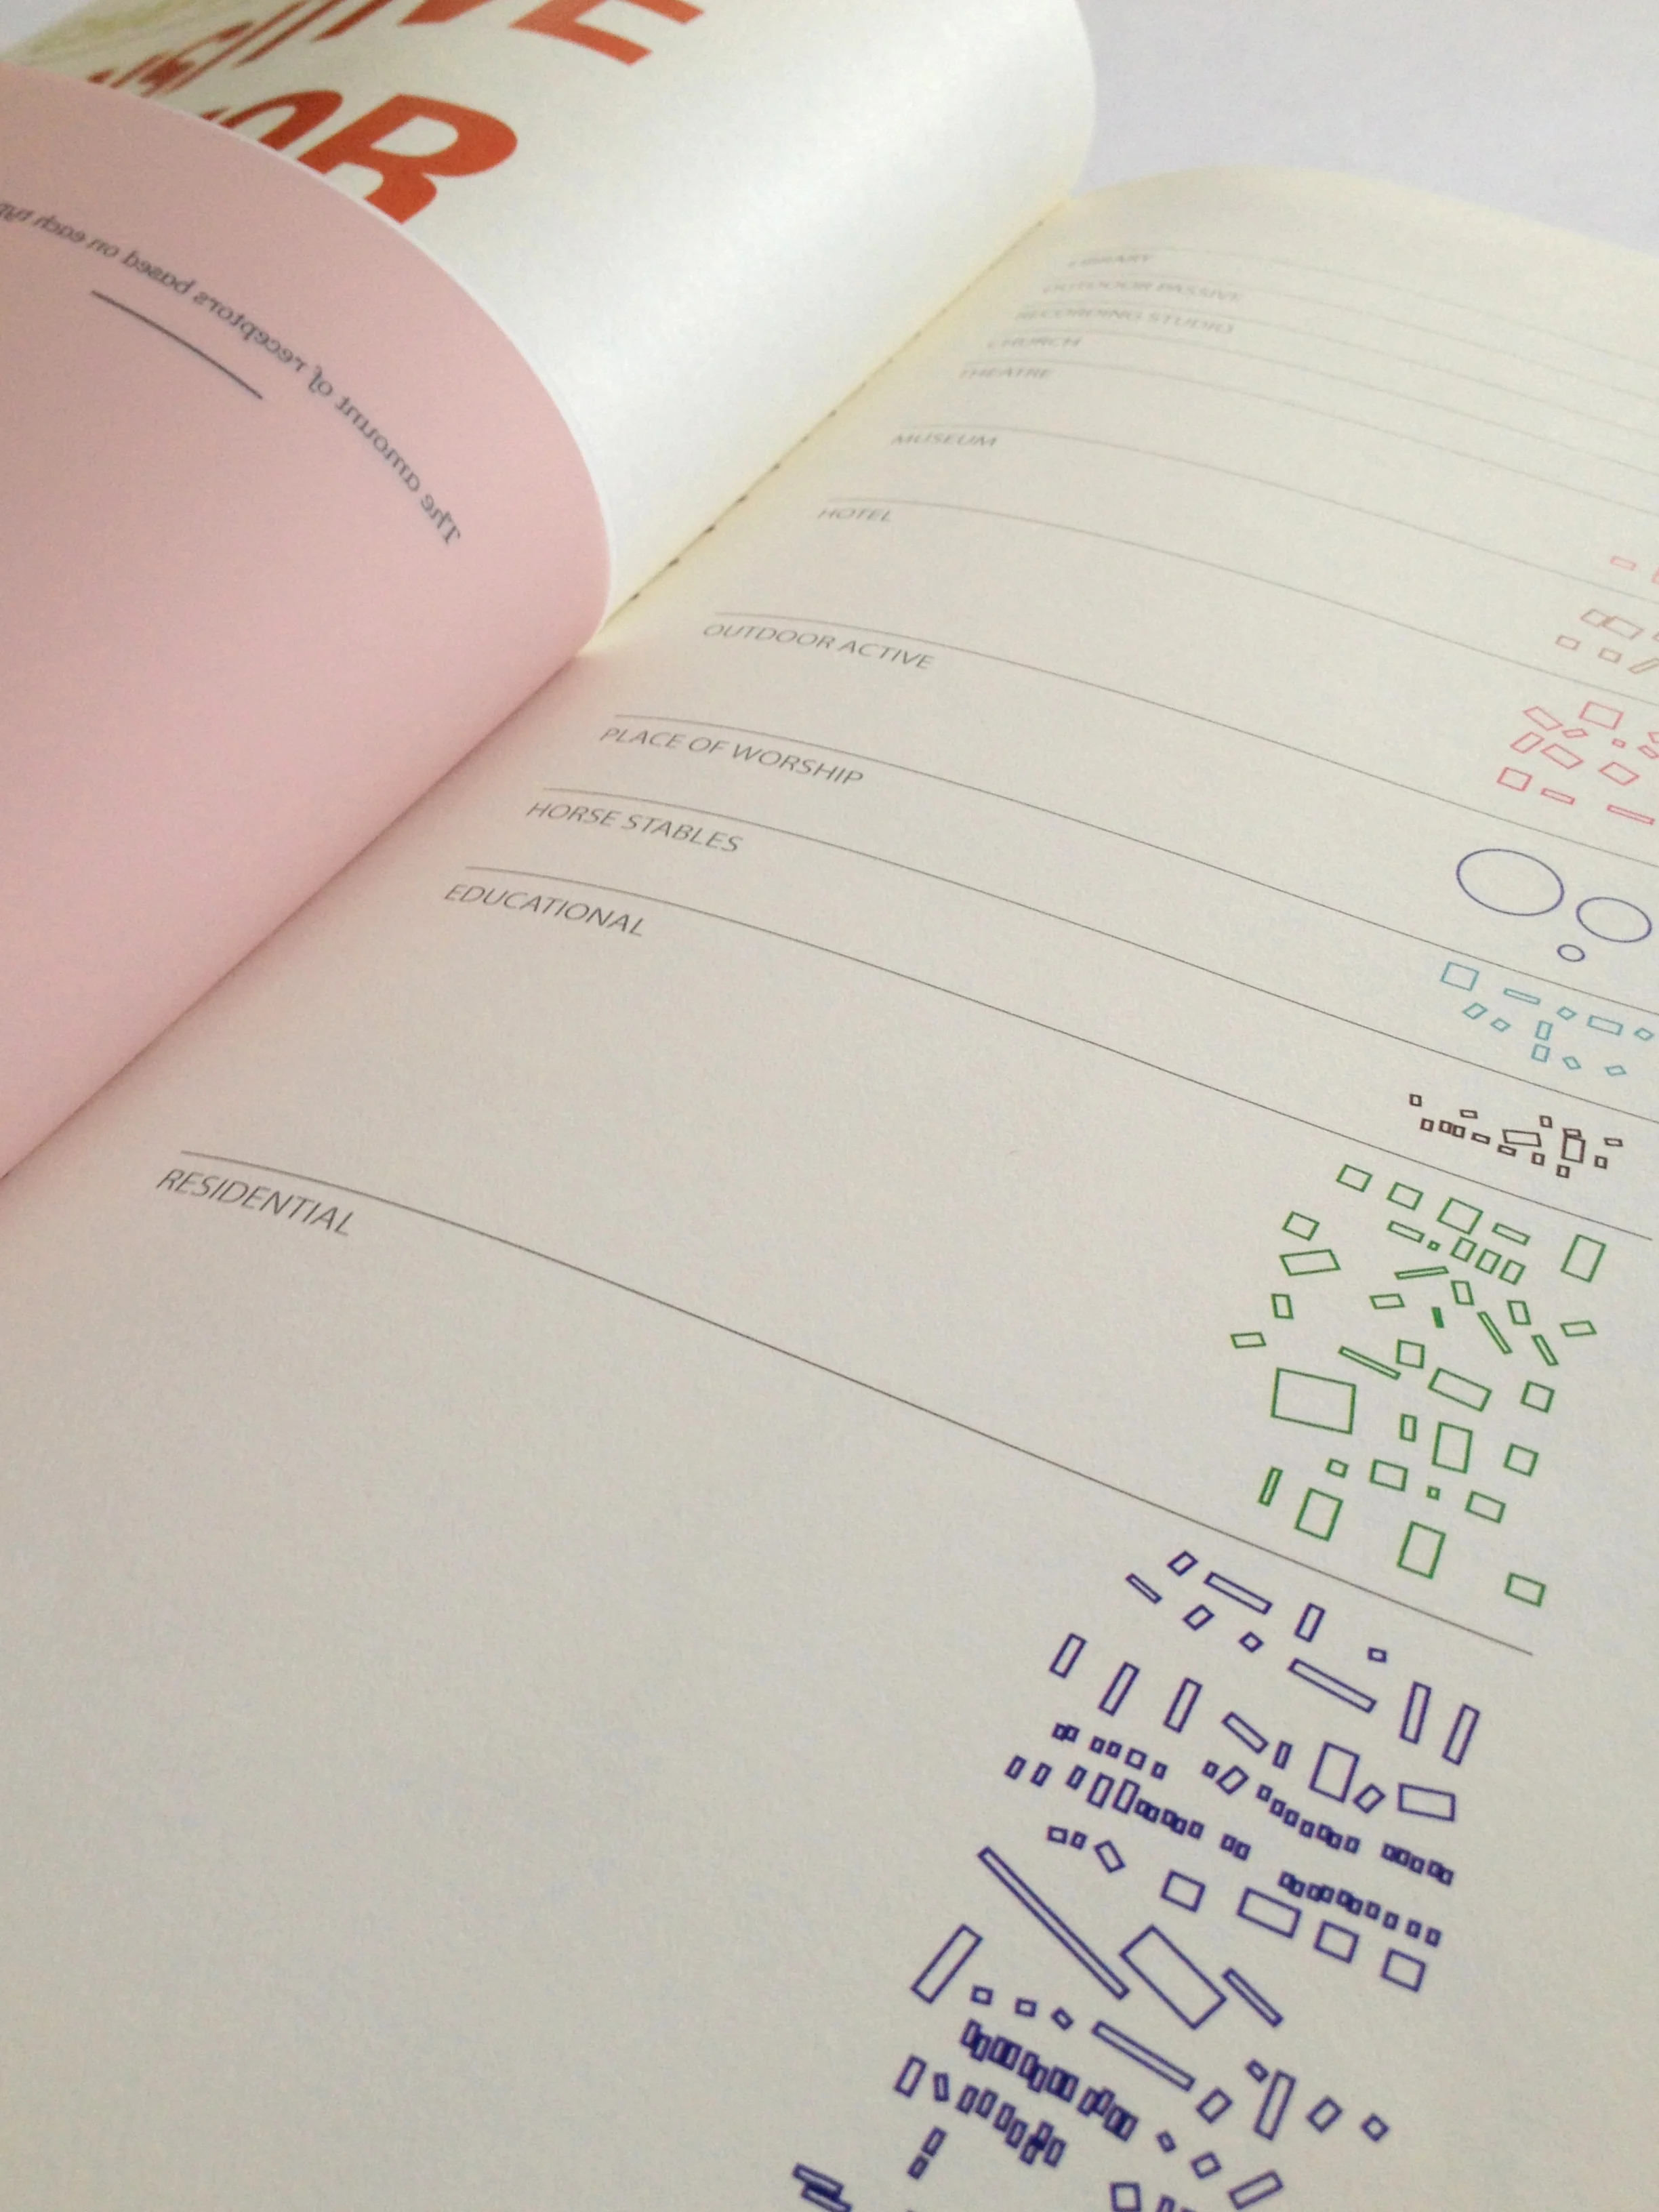 VE
OR
The amount of receptors based on each
LIBRARY
OUTDOOR PASSIVE
RECORDING STUDIO
CHURCH
THEATRE
MUSEUM
HOTEL
OUTDOOR ACTIVE
PLACE OF WORSHIP
HORSE STABLES
EDUCATIONAL
RESIDENTIAL